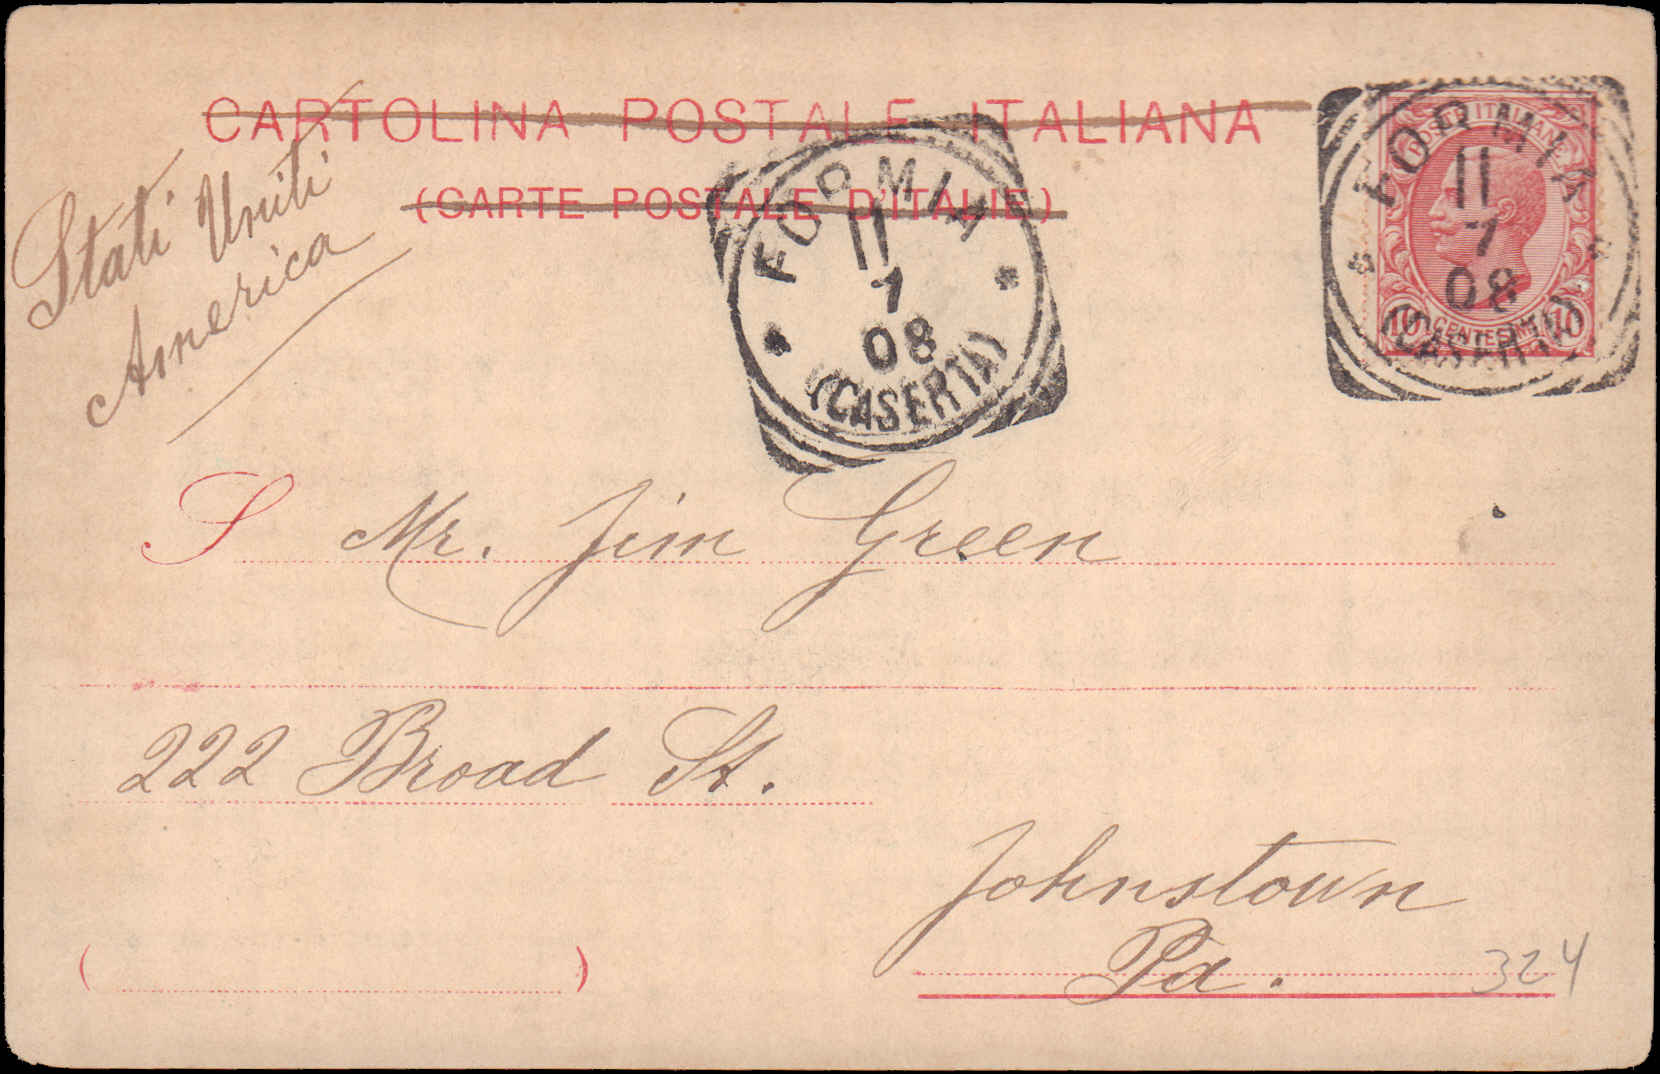 CARTOLINA POSTALE ITALIANA
(CARTE POSTALE D'ITALIE)
Stati Uniti
America
FORMIA
11
1
08
(CASERTA)
POSTE ITALIANE
10 CENTESIMI 10
FORMIA
11
1
08
(CASERTA)
S Mr. Jim Green
222 Broad St.
Johnstown
Pa.
324
( )